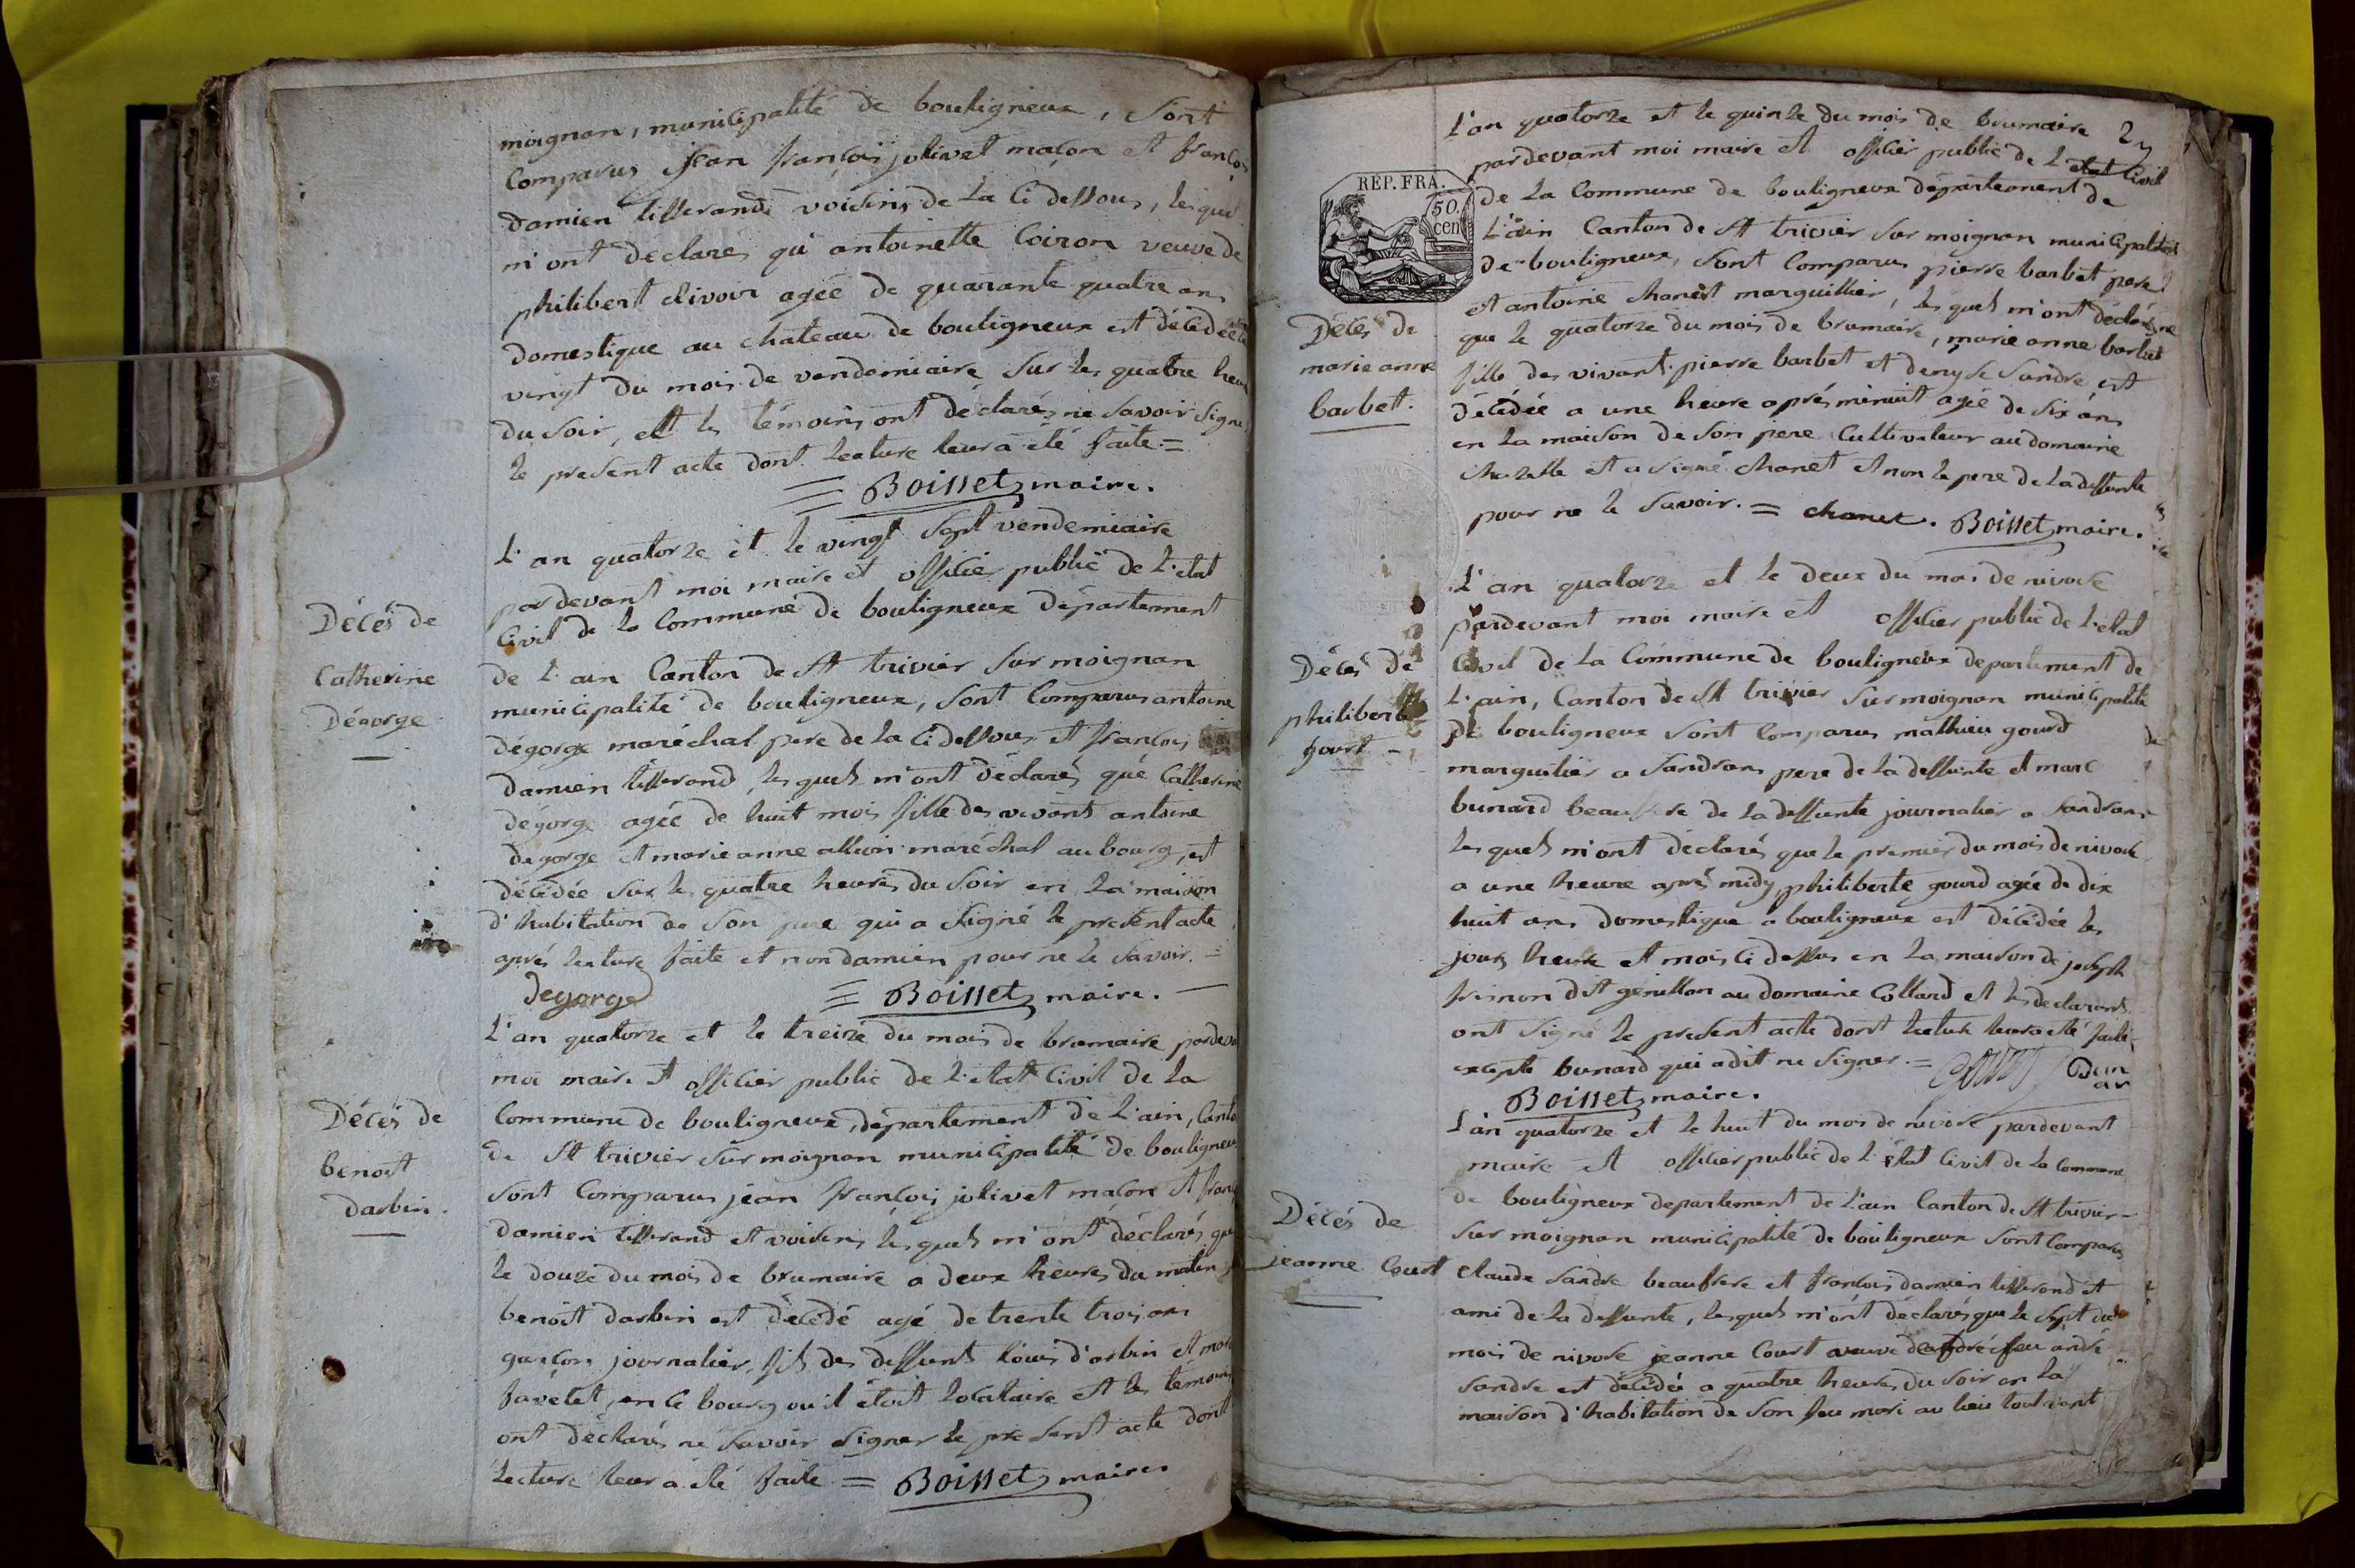 moignan, municipalité de bouligneux, Sont
Comparus jean françois jolivet maçon et françois
damien tisserands voisins de la Ci dessous, lesquels
m'ont declarés qu'antoinette Coiron veuve de
philibert agée de quarante quatre ans
domestique au chateau de bouligneux est décédée le
vingt du mois de vendemiaire Sur les quatre heures
du soir, et les témoins ont déclarés ne savoir signer
le present acte dont lecture leur a été faite =
= Boisset maire.
Décés de
Catherine
Dégorge
L'an quatorze et le vingt Sept vendemiaire
pardevant moi maire et officier public de L'etat
Civil de la Commune de bouligneux département
de L'ain Canton de St trivier sur moignan
municipalité de bouligneux, sont Comparus antoine
dégorge maréchal pere de la Ci dessous et françois
damien tisserand, lesquels m'ont déclarés que Catherine
dégorge agée de huit mois fille des vivants antoine
degorge et marie anne maréchal au bourg, est
décédée sur les quatre heures du soir en la maison
d'habitation de son pere qui a signé le present acte
aprés lecture faite et non damien pour ne le savoir. =
degorge = Boisset maire. —
Décés de
benoit
darbin.
L'an quatorze et le treize du mois de brumaire pardevant
moi maire et officier public de L'etat Civil de la
Commune de bouligneux, département de L'ain, Canton
de St trivier sur moignan municipalité de bouligneux
sont Comparus jean françois jolivet maçon et françois
damien tisserand et voisins, lesquels m'ont déclarés que
le douze du mois de brumaire a deux heures du matin
benoit darbin est décédé agé de trente trois ans
garçon journalier, fils des deffunts Louis d'arbin et
favelet, en ce bourg ou il étoit locataire et les témoins
ont déclarés ne savoir signer le present acte dont
lecture leur a été faite = Boisset maire
2
REP. FRA.
50.
cen
Décés de
marie anne
barbet.
L'an quatorze et le quinze du mois de brumaire
pardevant moi maire et officier public de L'etat Civil
de la Commune de bouligneux département de
L'ain Canton de St trivier sur moignan municipalité
de bouligneux, sont Comparus pierre barbet pere
et antoine chanet marguillier, lesquels m'ont déclarés
que le quatorze du mois de brumaire, marie anne barbet
fille des vivant pierre barbet et denyse Sandre est
décédée a une heure aprés minuit agée de six ans
en la maison de son pere Cultivateur au domaine
chazelle et a signé chanet et non le pere de la deffunte
pour ne le savoir. = chanet. Boisset maire.
Décés de
philiberte
gourd
L'an quatorze et le deux du mois de nivose
pardevant moi maire et officier public de L'etat
Civil de la Commune de bouligneux departement de
L'ain, Canton de St trivier sur moignan municipalité
de bouligneux sont Comparus mathieu gourd
marguilier a Sandrans pere de la deffunte et marc
bunard beaufrere de la deffunte journalier a Sandrans
lesquels m'ont déclarés que le premier du mois de nivose
a une heure aprés midy, philiberte gourd agée de dix
huit ans domestique a bouligneux est décédée les
jours heure et mois Ci dessus en la maison de joseph
dit genillon au domaine Collard et les declarants
ont signé le present acte dont lecture leur a été faite,
excepte bunard qui a dit ne signer. =
Boisset maire.
Décés de
jeanne Court
L'an quatorze et le huit du mois de nivose pardevant
maire et officier public de L'état Civil de la Commune
de bouligneux departement de L'ain Canton de St trivier
sur moignan municipalité de bouligneux sont Comparus
Claude Sandre beaufrere et françois damien tisserand et
ami de la deffunte, lesquels m'ont déclarés que le sept du
mois de nivose jeanne Court veuve de feu andré
Sandre est décédée a quatre heures du soir en la
maison d'habitation de son feu mari au lieu